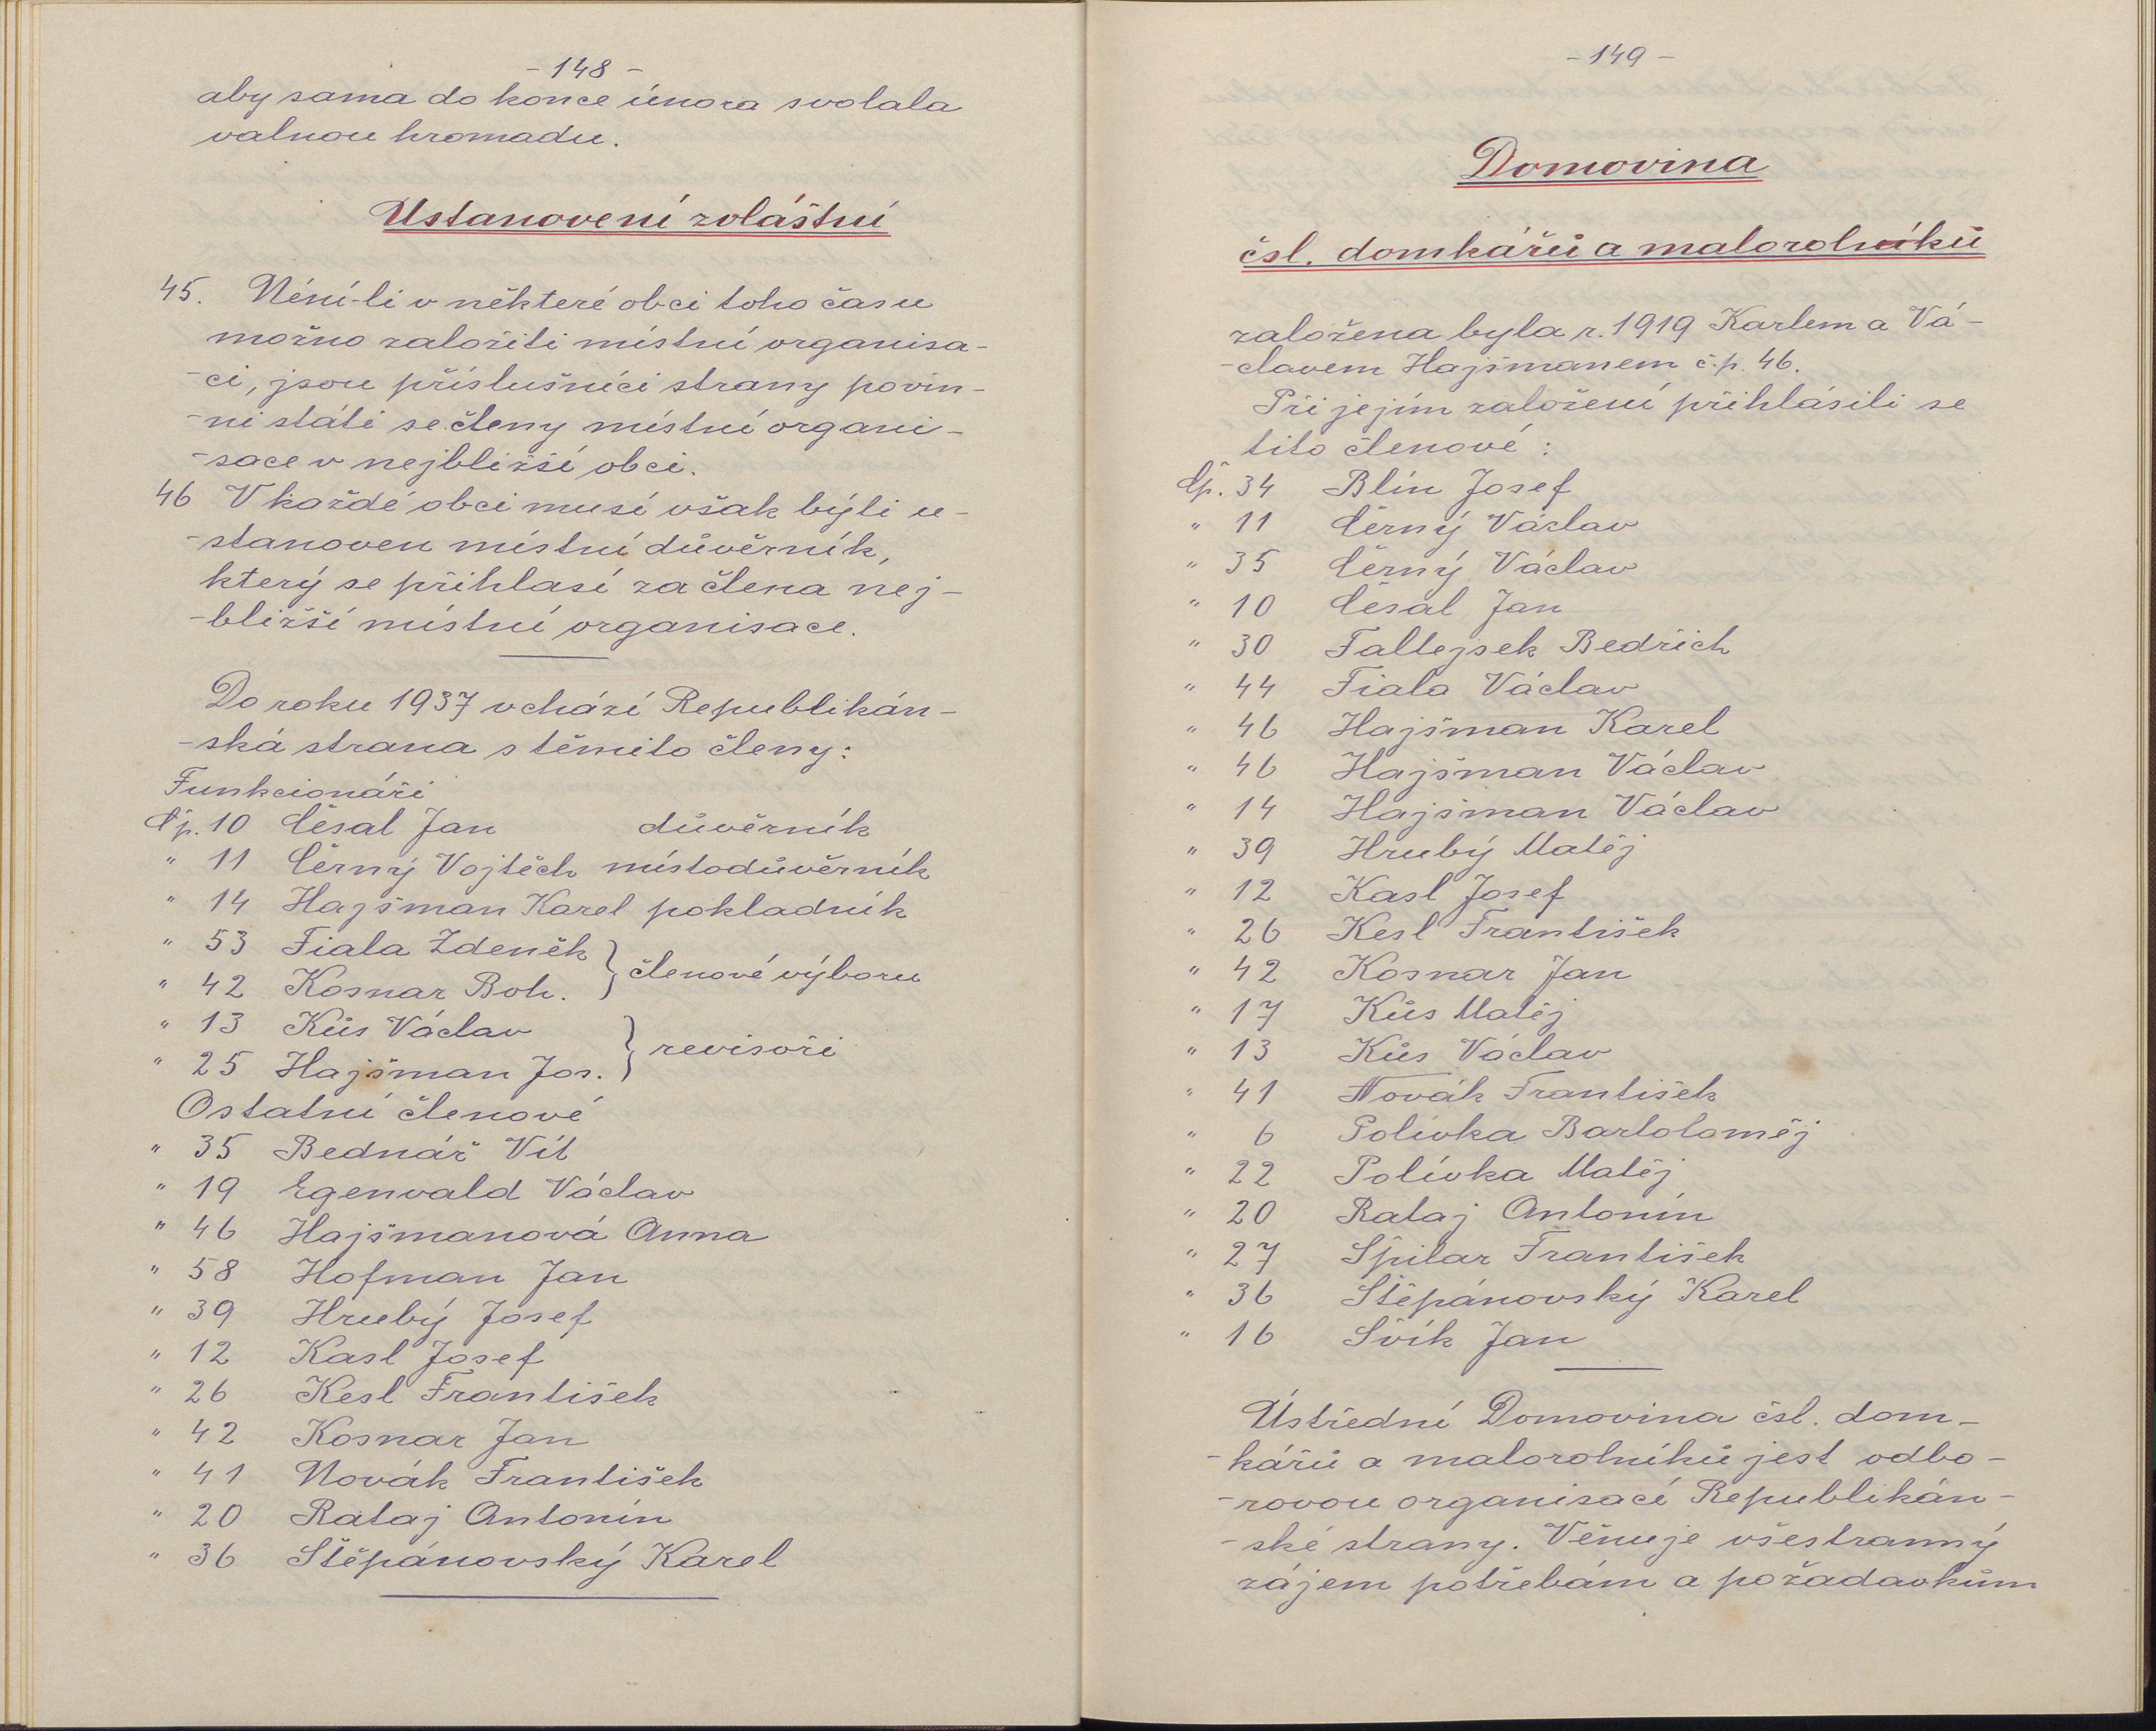 - 148 -
aby sama do konce února svolala
valnou hromadu.
Ustanovení zvláštní
45. Není-li v některé obci toho času
možno založiti místní organisa-
-ci, jsou příslušníci strany povin-
-ni státi se členy místní organi-
-sace v nejbližší obci.
46 V každé obci musí však býti u-
-stanoven místní důvěrník,
který se přihlasí za člena nej-
-bližší místní organisace.
Do roku 1937 vchází Republikán-
-ská strana s těmito členy:
Funkcionáři
Čp. 10 Čésal Jan důvěrník
" 11 Černý Vojtěch místodůvěrník
" 14 Hajšman Karel pokladník
" 53 Fiala Zdeněk
" 42 Kosnar Boh. } členové výboru
" 13 Kůs Václav
" 25 Hajšman Jos. } revisoři
Ostatní členové
" 35 Bednář Vít
" 19 Egenvald Václav
" 46 Hajšmanová Anna
" 58 Hofman Jan
" 39 Hrubý Josef
" 12 Kasl Josef
" 26 Kesl František
" 42 Kosnar Jan
" 41 Novák František
" 20 Rataj Antonín
" 36 Štěpánovský Karel
- 149 -
Domovina
čsl. domkářů a malorolníků
založena byla r. 1919 Karlem a Vá-
-clavem Hajšmanem č.p. 46.
Při jejím založení přihlásili se
tito členové:
Čp. 34 Blín Josef
" 11 Černý Václav
" 35 Černý Václav
" 10 Čésal Jan
" 30 Faltejsek Bedřich
" 44 Fiala Václav
" 46 Hajšman Karel
" 46 Hajšman Václav
" 14 Hajšman Václav
" 39 Hrubý Matěj
" 12 Kasl Josef
" 26 Kesl František
" 42 Kosnar Jan
" 17 Kůs Matěj
" 13 Kůs Václav
" 41 Novák František
" 6 Polívka Bartoloměj
" 22 Polívka Matěj
" 20 Rataj Antonín
" 27 Špilar František
" 36 Štěpánovský Karel
" 16 Švík Jan
Ústřední Domovina čsl. dom-
-kářů a malorolníků jest odbo-
-rovou organisací Republikán-
-ské strany. Věnuje všestranný
zájem potřebám a požadavkům